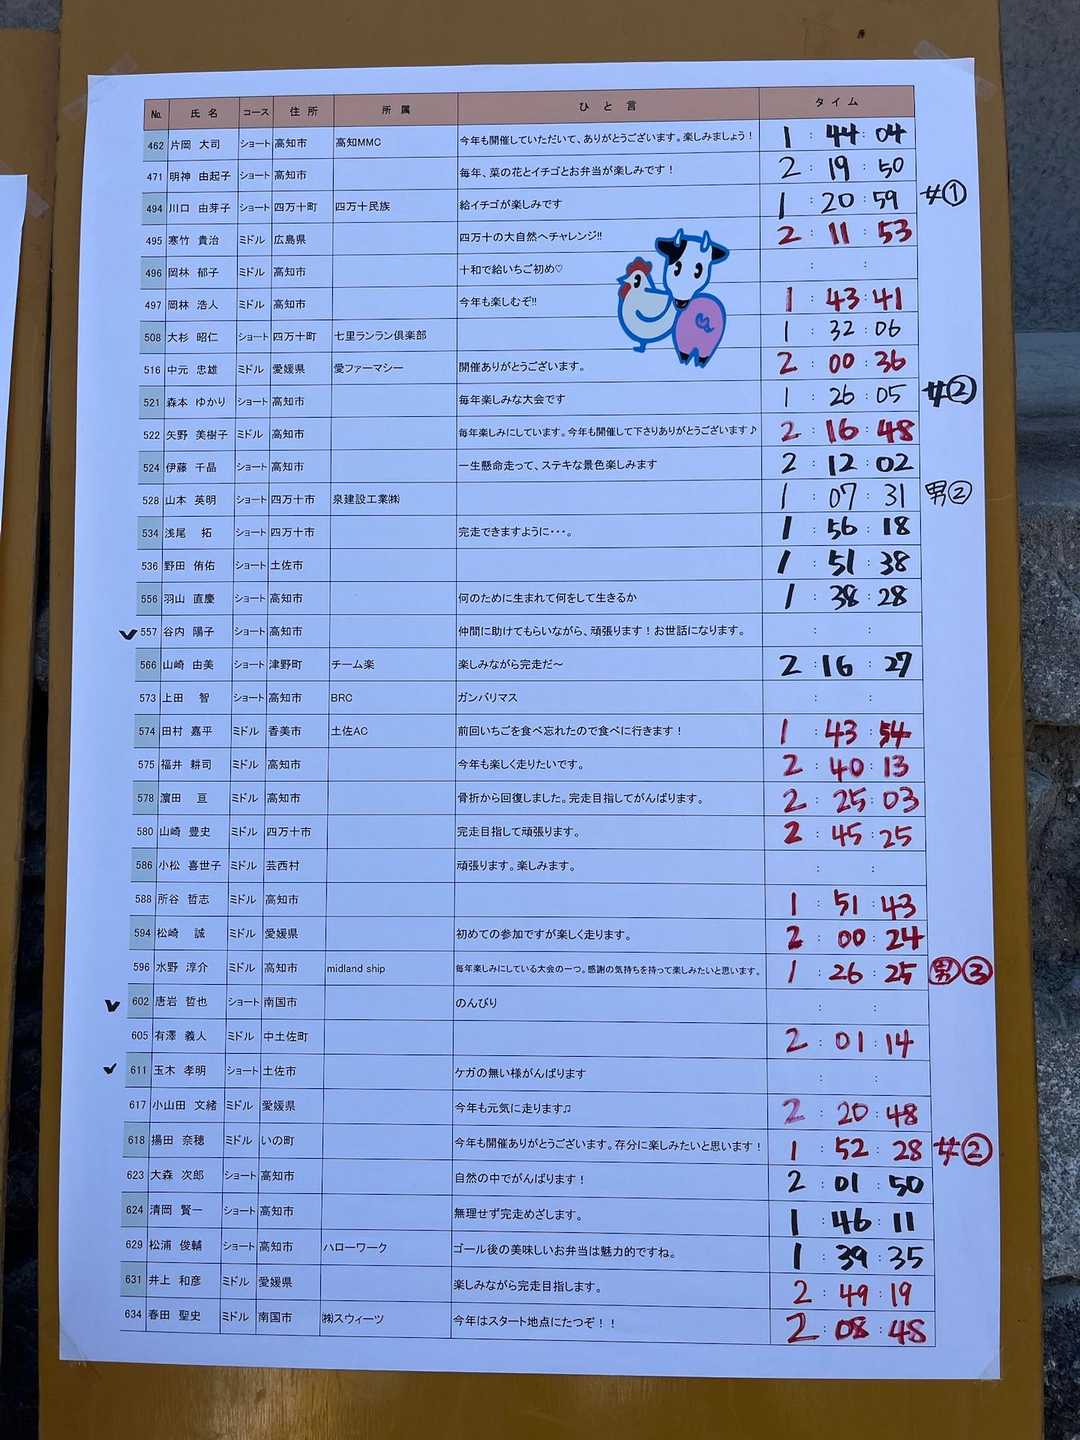 No. 氏名 コース 住所 所属 ひと言 タイム
462 片岡 大司 ショート 高知市 高知MMC 今年も開催していただいて、ありがとうございます。楽しみましょう! 1:44:04
471 明神 由起子 ショート 高知市 毎年、菜の花とイチゴとお弁当が楽しみです! 2:19:50
494 川口 由芽子 ショート 四万十町 四万十民族 給イチゴが楽しみです 1:20:59 女①
495 寒竹 貴治 ミドル 広島県 四万十の大自然へチャレンジ!! 2:11:53
496 岡林 郁子 ミドル 高知市 十和で給いちご初め♡ : :
497 岡林 浩人 ミドル 高知市 今年も楽しむぞ!! 1:43:41
508 大杉 昭仁 ショート 四万十町 七里ランラン倶楽部 1:32:06
516 中元 忠雄 ミドル 愛媛県 愛ファーマシー 開催ありがとうございます。 2:00:36
521 森本 ゆかり ショート 高知市 毎年楽しみな大会です 1:26:05 女②
522 矢野 美樹子 ミドル 高知市 毎年楽しみにしています。今年も開催して下さりありがとうございます♪ 2:16:48
524 伊藤 千晶 ショート 高知市 一生懸命走って、ステキな景色楽しみます 2:12:02
528 山本 英明 ショート 四万十市 泉建設工業㈱ 1:07:31 男②
534 浅尾 拓 ショート 四万十市 完走できますように・・・。 1:56:18
536 野田 侑佑 ショート 土佐市 1:51:38
556 羽山 直慶 ショート 高知市 何のために生まれて何をして生きるか 1:38:28
✓ 557 谷内 陽子 ショート 高知市 仲間に助けてもらいながら、頑張ります!お世話になります。 : :
566 山崎 由美 ショート 津野町 チーム楽 楽しみながら完走だ~ 2:16:27
573 上田 智 ショート 高知市 BRC ガンバリマス : :
574 田村 嘉平 ミドル 香美市 土佐AC 前回いちごを食べ忘れたので食べに行きます! 1:43:54
575 福井 耕司 ミドル 高知市 今年も楽しく走りたいです。 2:40:13
578 濵田 亘 ミドル 高知市 骨折から回復しました。完走目指してがんばります。 2:25:03
580 山崎 豊史 ミドル 四万十市 完走目指して頑張ります。 2:45:25
586 小松 喜世子 ミドル 芸西村 頑張ります。楽しみます。 : :
588 所谷 哲志 ミドル 高知市 1:51:43
594 松崎 誠 ミドル 愛媛県 初めての参加ですが楽しく走ります。 2:00:24
596 水野 淳介 ミドル 高知市 midland ship 毎年楽しみにしている大会の一つ。感謝の気持ちを持って楽しみたいと思います。 1:26:25 男③
✓ 602 唐岩 哲也 ショート 南国市 のんびり : :
605 有澤 義人 ミドル 中土佐町 2:01:14
✓ 611 玉木 孝明 ショート 土佐市 ケガの無い様がんばります : :
617 小山田 文緒 ミドル 愛媛県 今年も元気に走ります♫ 2:20:48
618 揚田 奈穂 ミドル いの町 今年も開催ありがとうございます。存分に楽しみたいと思います! 1:52:28 女②
623 大森 次郎 ショート 高知市 自然の中でがんばります! 2:01:50
624 清岡 賢一 ショート 高知市 無理せず完走めざします。 1:46:11
629 松浦 俊輔 ショート 高知市 ハローワーク ゴール後の美味しいお弁当は魅力的ですね。 1:39:35
631 井上 和彦 ミドル 愛媛県 楽しみながら完走目指します。 2:49:19
634 春田 聖史 ミドル 南国市 ㈱スウィーツ 今年はスタート地点にたつぞ!! 2:08:48